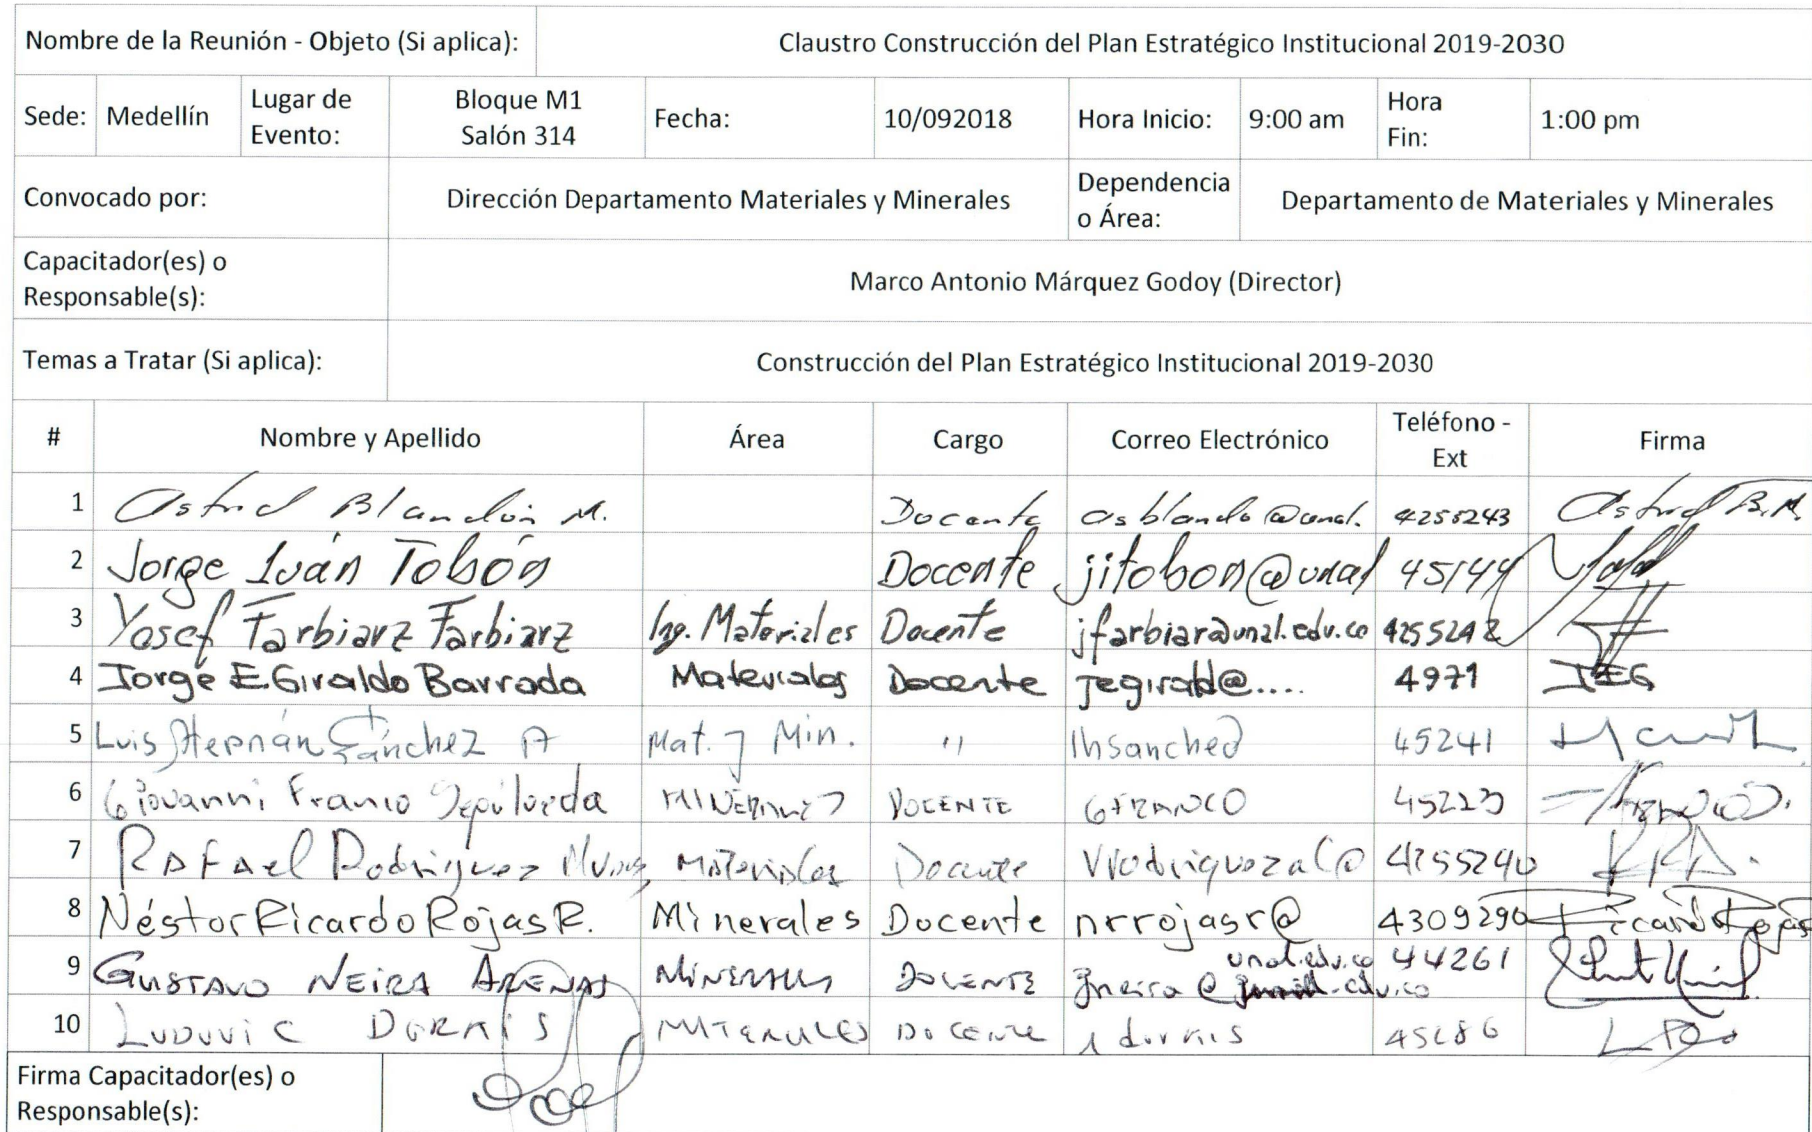 Nombre de la Reunión - Objeto (Si aplica): Claustro Construcción del Plan Estratégico Institucional 2019-2030
Sede: Medellín Lugar de Evento: Bloque M1 Salón 314 Fecha: 10/092018 Hora Inicio: 9:00 am Hora Fin: 1:00 pm
Convocado por: Dirección Departamento Materiales y Minerales Dependencia o Área: Departamento de Materiales y Minerales
Capacitador(es) o Responsable(s): Marco Antonio Márquez Godoy (Director)
Temas a Tratar (Si aplica): Construcción del Plan Estratégico Institucional 2019-2030
# Nombre y Apellido Área Cargo Correo Electrónico Teléfono - Ext Firma
1 Astrid Blandón M. Docente asblando@unal. 4255243 Astrid B.M.
2 Jorge Iván Tobón Docente jitobon@unal 45144
3 Yosef Farbiarz Farbiarz Ing. Materiales Docente jfarbiar@unal.edu.co 4255242
4 Jorge E. Giraldo Barrada Materiales Docente jegirald@.... 4971 JEG
5 Luis Hernán Sánchez A Mat. y Min. " lhsanche@ 45241
6 Giovanni Franco Sepúlveda MINERALES DOCENTE GFRANCO 45223
7 Rafael Rodriguez Materiales Docente 4255240
8 Néstor Ricardo Rojas R. Minerales Docente nrrojasr@ 4309290 Ricardo Rojas
9 GUSTAVO NEIRA ARENAS MINERALES DOCENTE gneira@ unal.edu.co 44261
10 LUDOVIC DORKIS MATERIALES DOCENTE ldorkis 45286
Firma Capacitador(es) o Responsable(s):